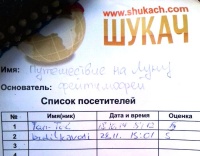 www.shukach.com
ШУКАЧ
Имя: Путешествие на Луну
Основатель: фейтлофей
Список посетителей
№ Имя(ник) Дата Время Оценка
1 5
2 28.11. 15:01 5
3